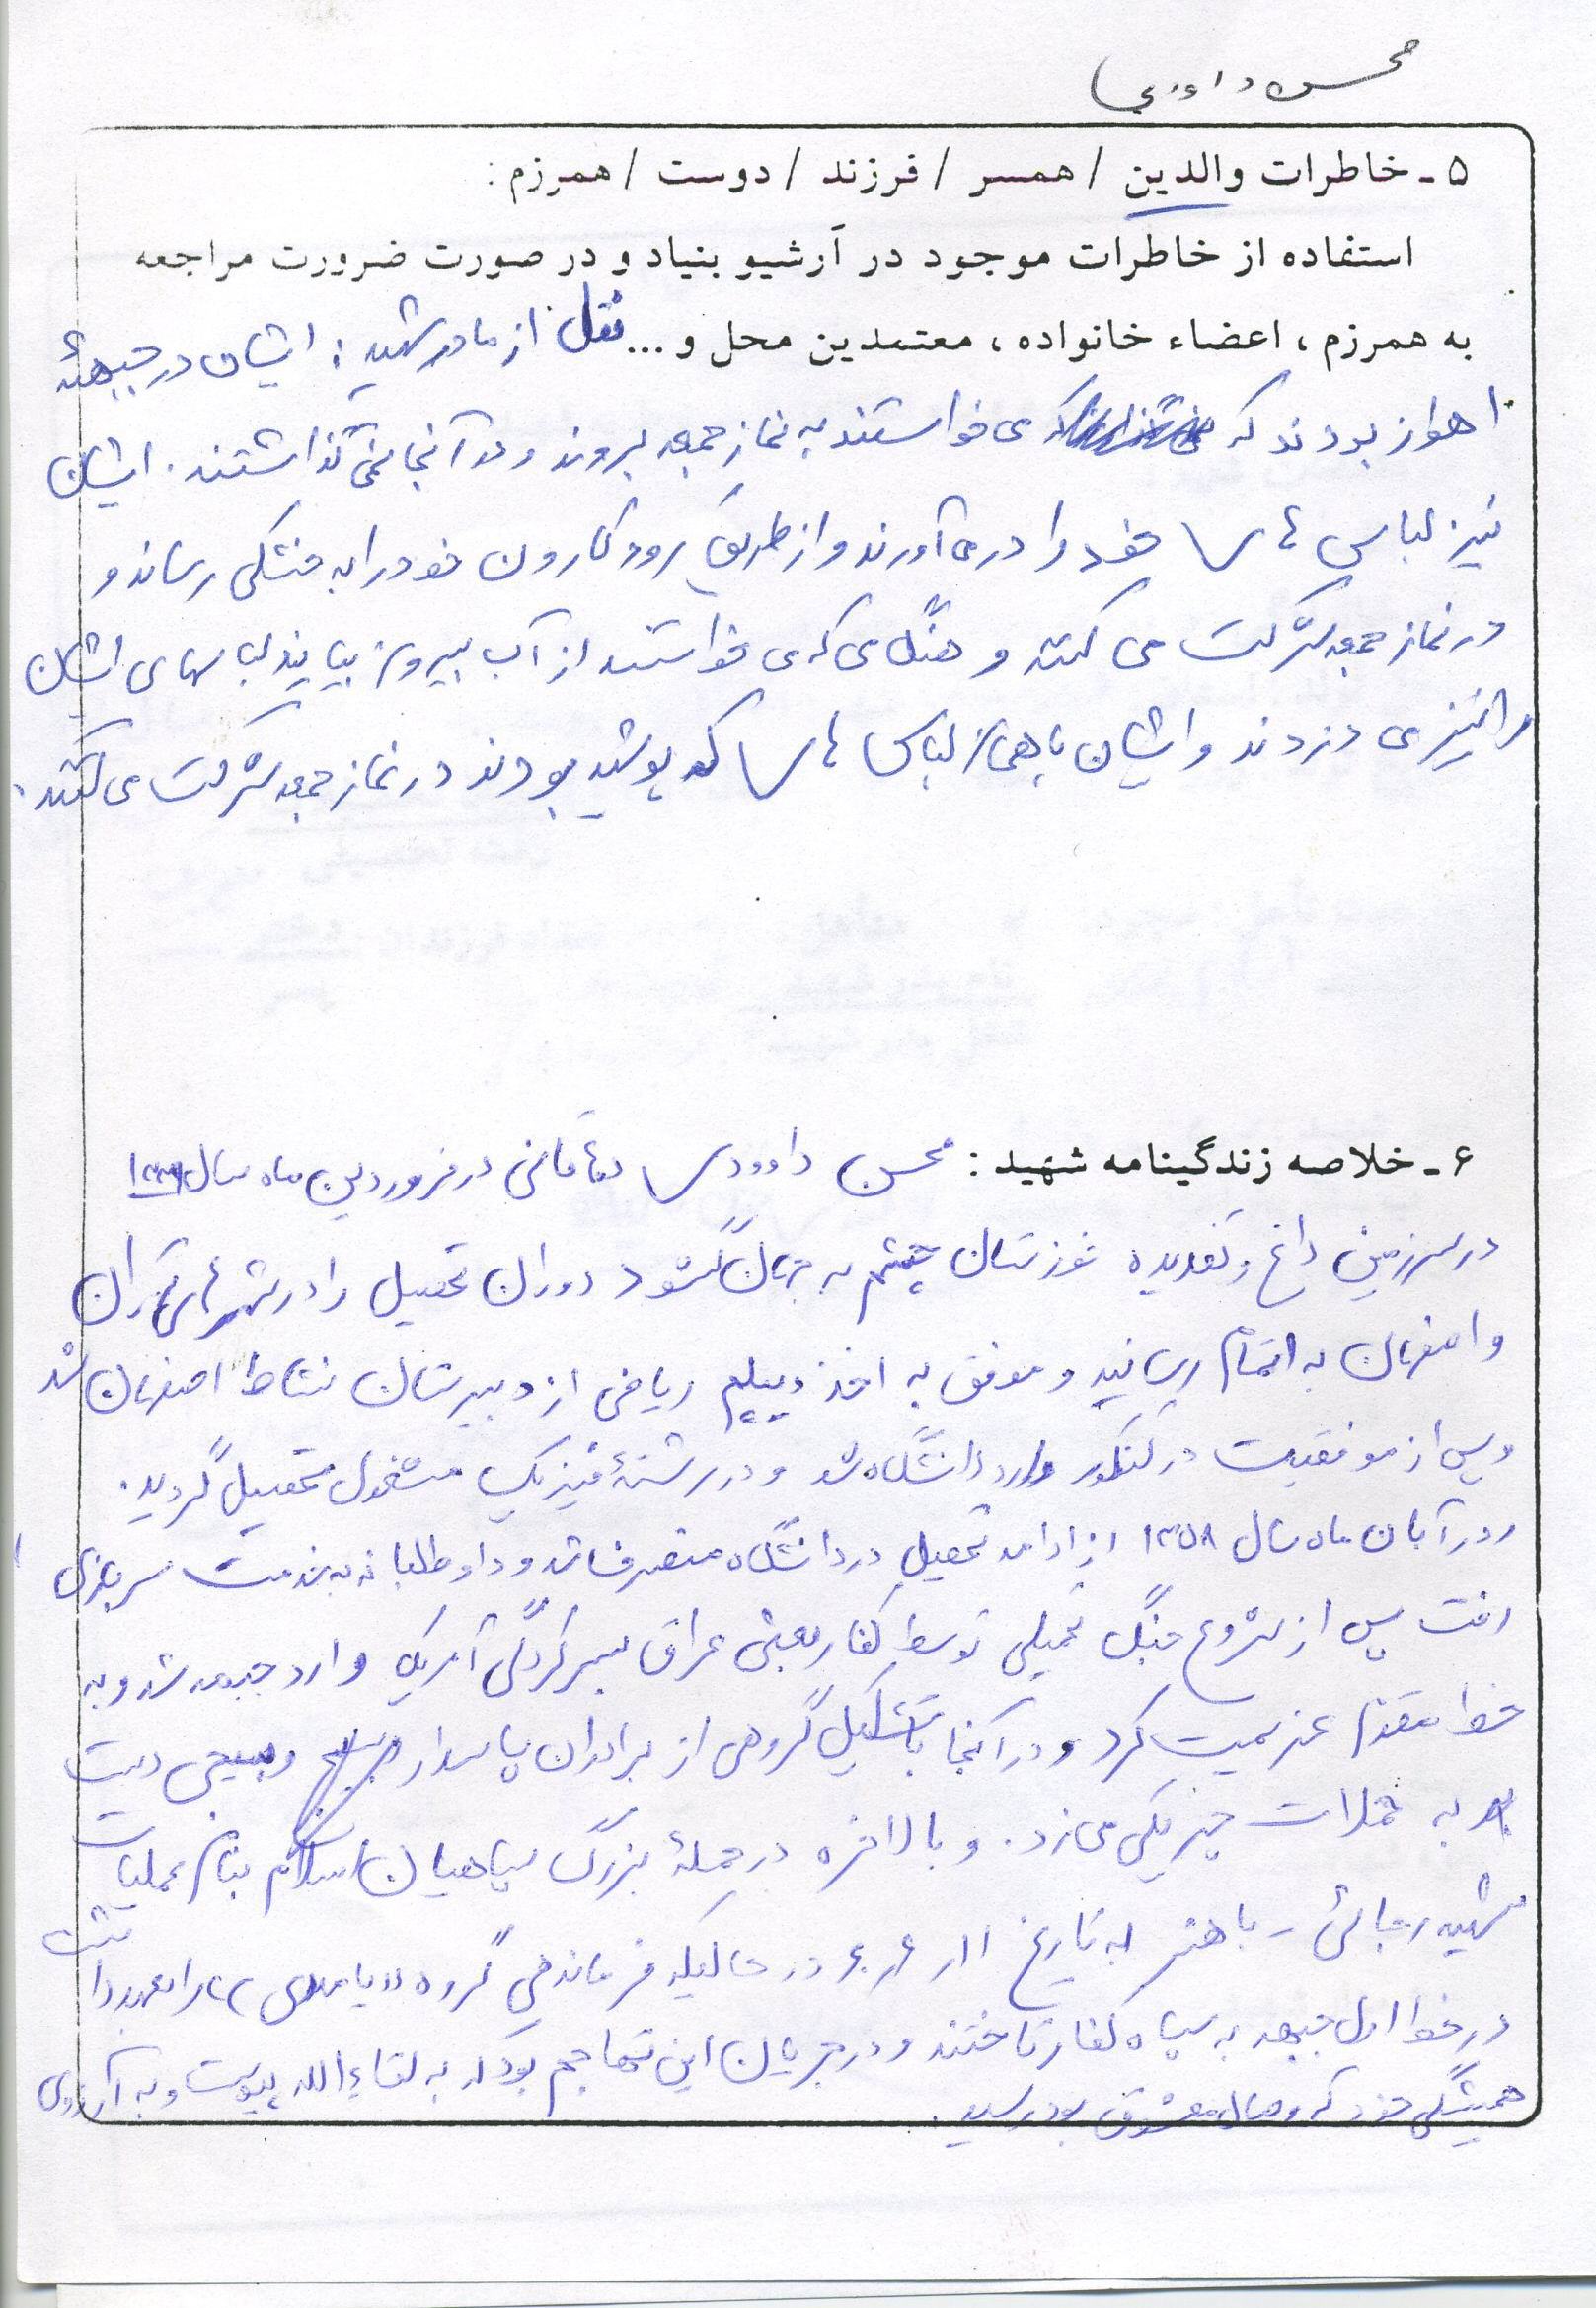 محسن داودی
۵ - خاطرات والدین / همسر / فرزند / دوست / همرزم :
استفاده از خاطرات موجود در آرشیو بنیاد و در صورت ضرورت مراجعه
به همرزم ، اعضاء خانواده ، معتمدین محل و ... نقل از مادر شهید : ایشان در جبههٔ
اهواز بودند که می خواستند به نماز جمعه بروند و در آنجا نمی گذاشتند . ایشان
نیز لباس های خود را در می آورند و از طریق رود کارون خود را به خشکی رساند و
در نماز جمعه شرکت می کنند و هنگامی که می خواستند از آب بیرون بیایند لباسهای ایشان
را نیز می دزدند و ایشان با همان لباس هایی که پوشیده بودند در نماز جمعه شرکت می کنند .
۶ - خلاصه زندگینامه شهید : محسن داوودی در فروردین ماه سال
در سرزمین داغ و تفدیده خوزستان چشم به جهان گشود دوران تحصیل را در شهرهای تهران
و اصفهان به اتمام رسانید و موفق به اخذ دیپلم ریاضی از دبیرستان نشاط اصفهان شد
و پس از موفقیت در کنکور وارد دانشگاه شد و در رشتهٔ فیزیک مشغول تحصیل گردید .
در آبان ماه سال ۱۳۵۸ از ادامه تحصیل در دانشگاه منصرف شد و داوطلبانه به خدمت سربازی
رفت پس از شروع جنگ تحمیلی توسط کفار بعثی عراق بسرکردگی آمریکا وارد جبهه شد و به
خط مقدم عزیمت کرد و در آنجا با تشکیل گروهی از برادران پاسدار و بسیجی دست
به حملات چریکی می زد . و بالاخره در حملهٔ بزرگ سپاهیان اسلام بنام عملیات
شهید رجائی - باهنر به تاریخ ۶۰/۶/۱۱ در حالیکه فرماندهی گروه را بعهده داشت
در خط اول جبهه به سپاه کفار تاختند و در جریان این تهاجم بود که به لقاء الله پیوست و به آرزوی
همیشگی خود که وصال معشوق بود رسید .